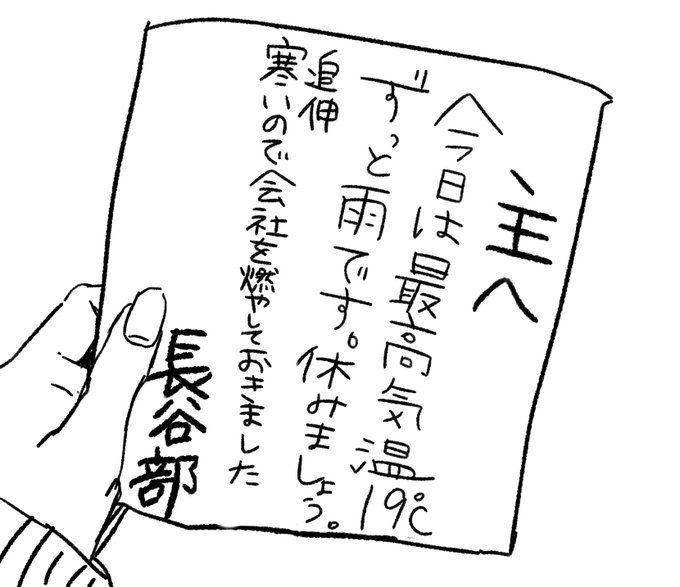 主へ
今日は最高気温19℃
ずっと雨です。休みましょう。
追伸
寒いので会社を燃やしておきました
長谷部